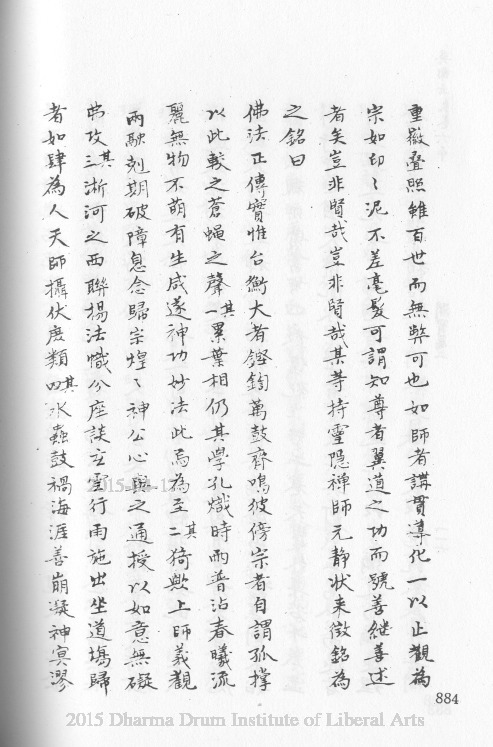 重徽疊照雖百世而無弊可也如師者講貫導化一以止觀為
宗如印〻泥不差毫髮可謂知尊者翼道之功而號善継善述
者矣豈非賢哉豈非賢哉某等持靈隐禅師元静状来徵銘為
之銘曰
佛法正傳實惟台衡大者鏗鍧萬鼓齋鳴彼傍宗者自謂孤撑
以此較之蒼蝇之聲其一累葉相仍其學孔熾時雨普沾春曦流
麗無物不萌有生咸遂神功妙法此焉為至其二猗歟上師義觀
兩駛剋期破障息念歸宗煌〻神公心與之通授以如意無礙
典攻其三淅河之西聯揚法幟分座談玄雲行雨施出坐道場歸
者如肆為人天師攝伏度類其四水蟲鼓禍海涯善崩凝神㝠謬
884
2015 Dharma Drum Institute of Liberal Arts